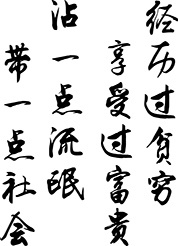 经历过贫穷
享受过富贵
沾一点流氓
带一点社会